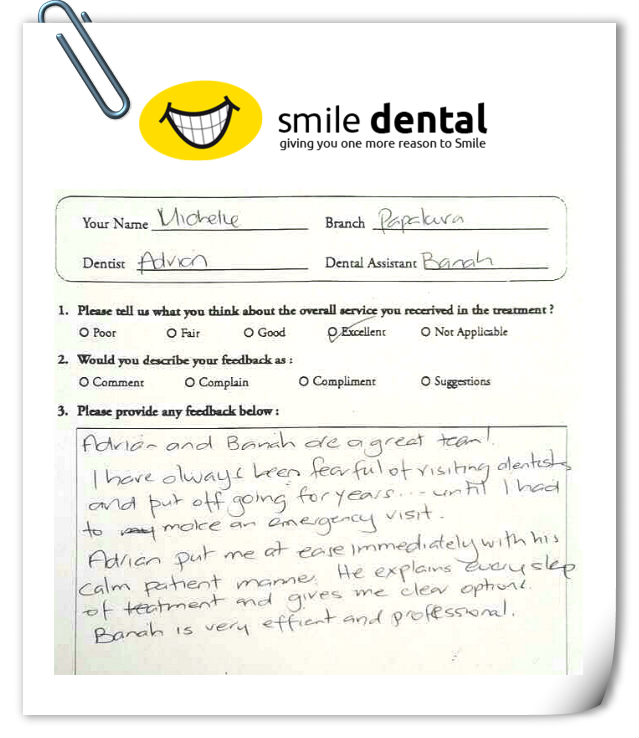 smile dental
giving you one more reason to Smile
Your Name Michelle Branch Papakura
Dentist Adrian Dental Assistant Banah
1. Please tell us what you think about the overall service you received in the treatment ?
O Poor O Fair O Good O Excellent O Not Applicable
2. Would you describe your feedback as :
O Comment O Complain O Compliment O Suggestions
3. Please provide any feedback below :
Adrian and Banah are a great team!
I have always been fearful of visiting dentists
and put off going for years... until I had
to make an emergency visit.
Adrian put me at ease immediately with his
calm patient manner. He explains every step
of treatment and gives me clear options.
Banah is very effient and professional.